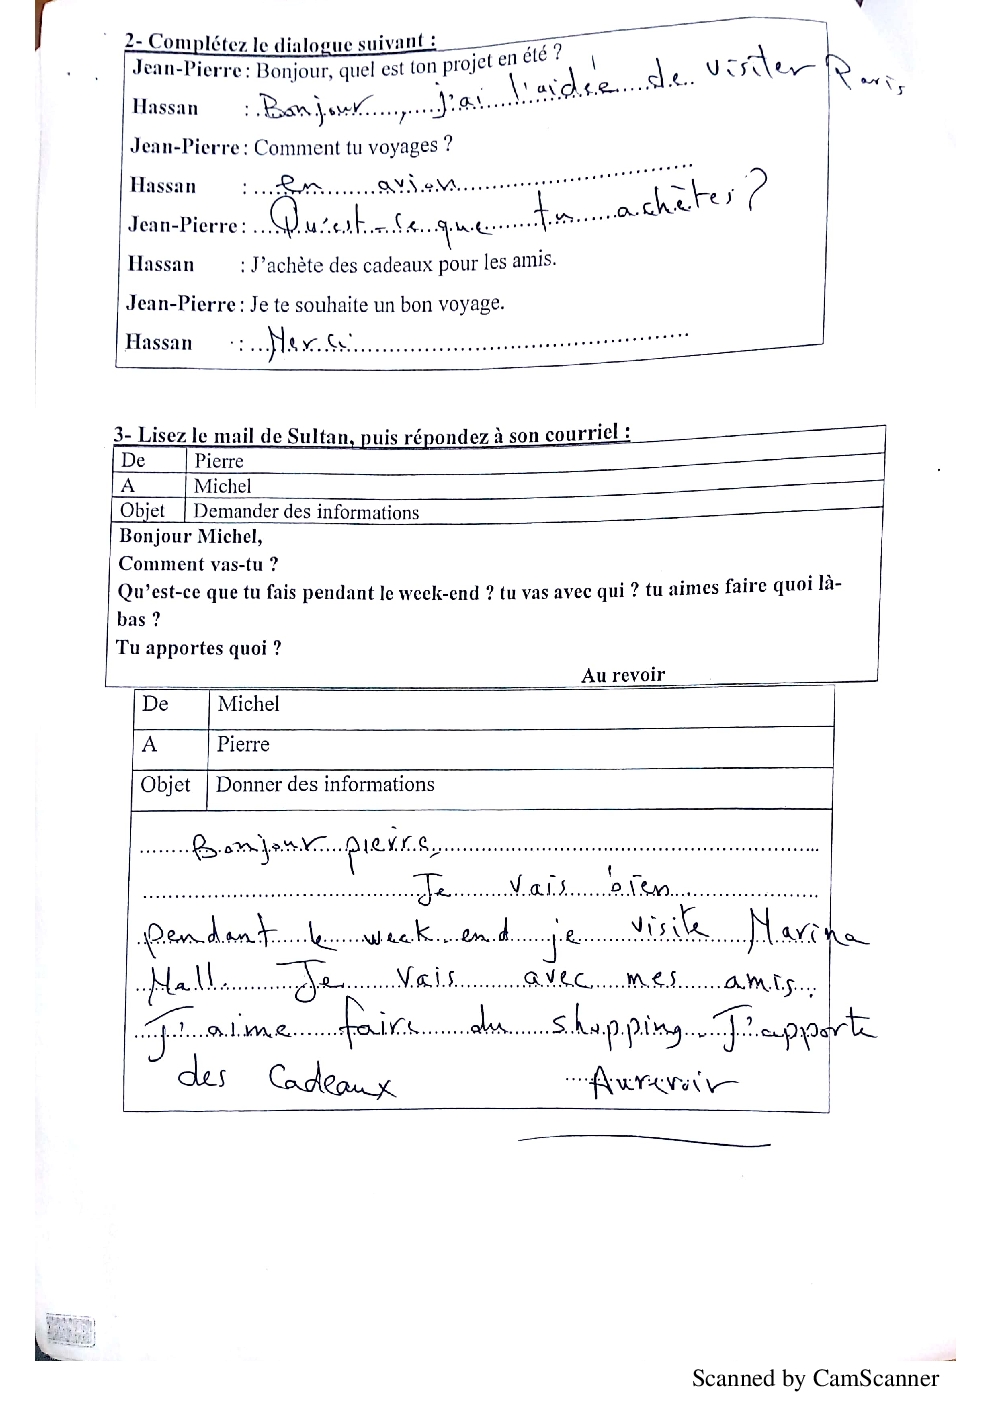 2- Complétez le dialogue suivant :
Jean-Pierre : Bonjour, quel est ton projet en été ?
Hassan : Bonjour, j'ai l'aidée de visiter Paris
Jean-Pierre : Comment tu voyages ?
Hassan : en avion
Jean-Pierre : Qu'est-ce que tu achètes ?
Hassan : J'achète des cadeaux pour les amis.
Jean-Pierre : Je te souhaite un bon voyage.
Hassan : Merci
3- Lisez le mail de Sultan, puis répondez à son courriel :
De Pierre
A Michel
Objet Demander des informations
Bonjour Michel,
Comment vas-tu ?
Qu'est-ce que tu fais pendant le week-end ? tu vas avec qui ? tu aimes faire quoi là-
bas ?
Tu apportes quoi ?
Au revoir
De Michel
A Pierre
Objet Donner des informations
Bonjour pierre,
Je vais bien
pendant le week end je visite Marina
Mall. Je vais avec mes amis.
J'aime faire du shopping. J'apporte
des cadeaux Aurevoir
Scanned by CamScanner